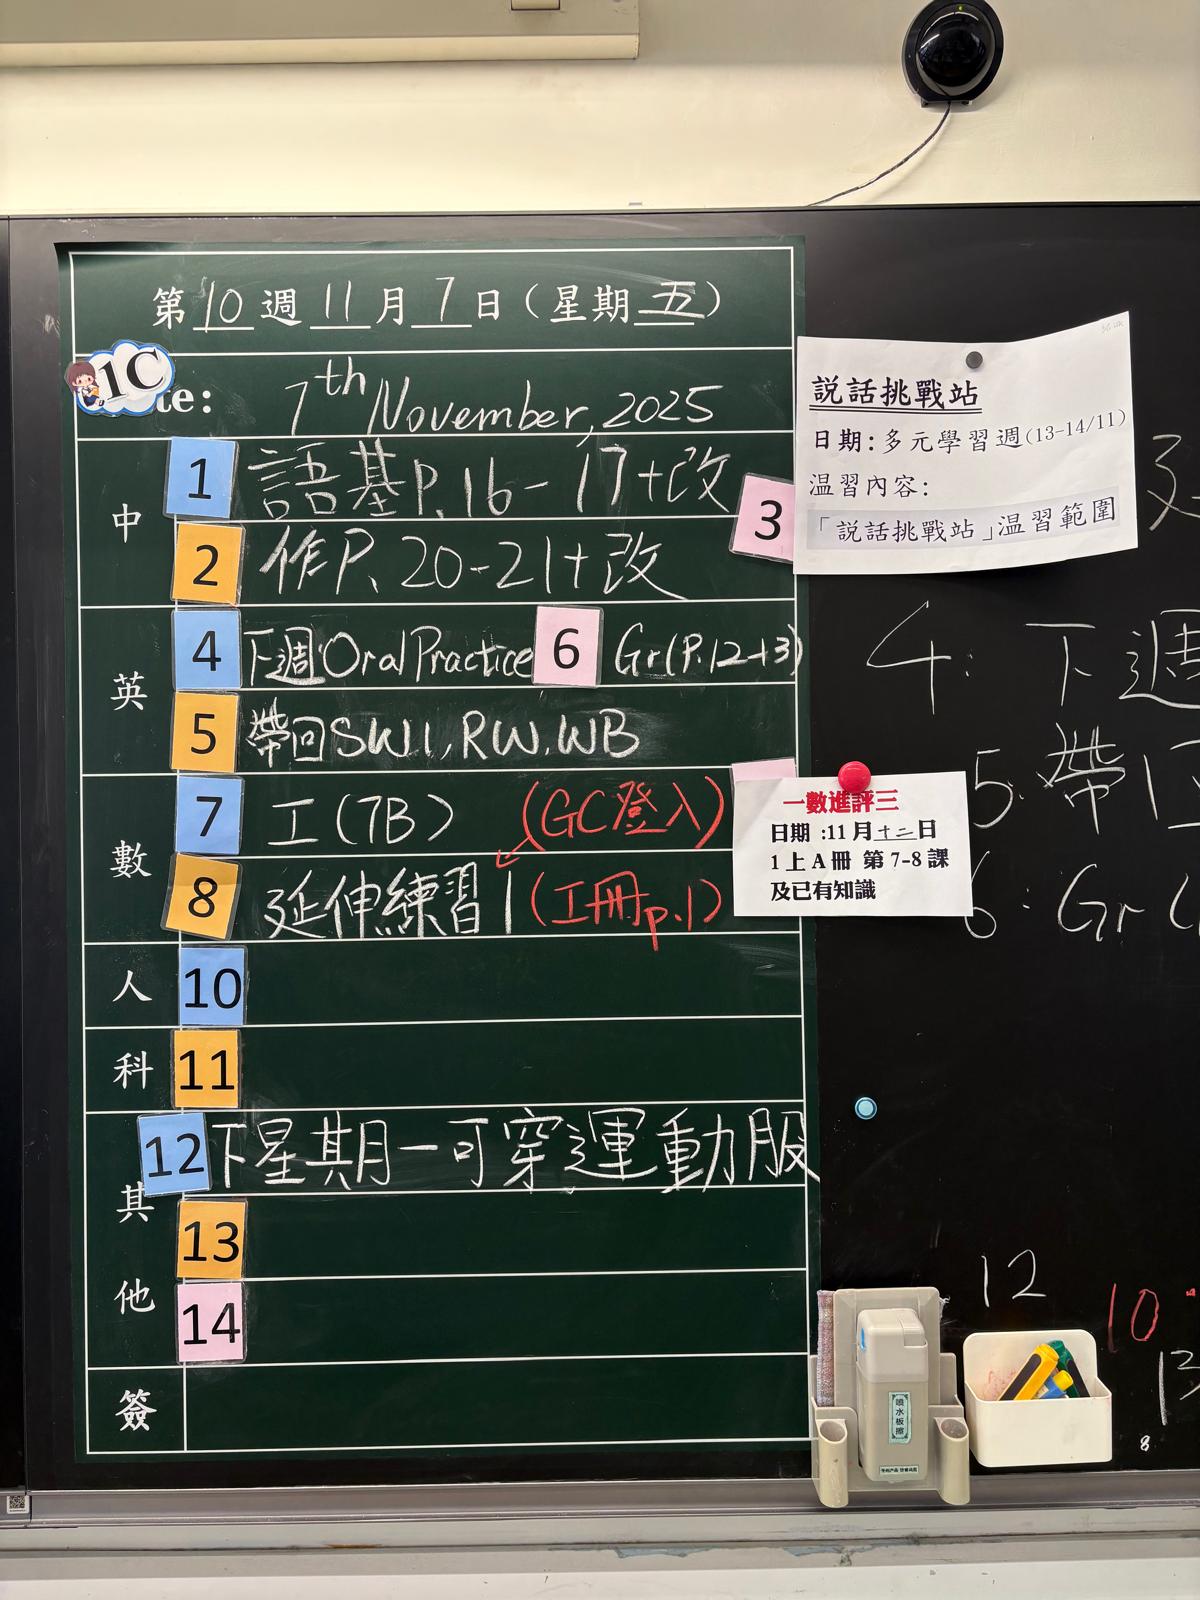 第10週11月7日(星期五)
1C
te: 7th November, 2025
中
1 語基P.16-17+改
2 作P.20-21+改
3
説話挑戰站
日期:多元學習週(13-14/11)
温習內容:
「説話挑戰站」温習範圍
英
4 下週Oral Practice 6 Gr(P.12+13)
5 帶回SW1,RW,WB
數
7 工(7B) (GC登入)
8 延伸練習1 (工冊p.1)
一數進評三
日期:11月十二日
1上A冊 第7-8課
及已有知識
人 10
科 11
其他
12 下星期一可穿運動服
13
14
簽
4: 下週
5.帶
6: Gr(
12
10
13
8
噴水板擦